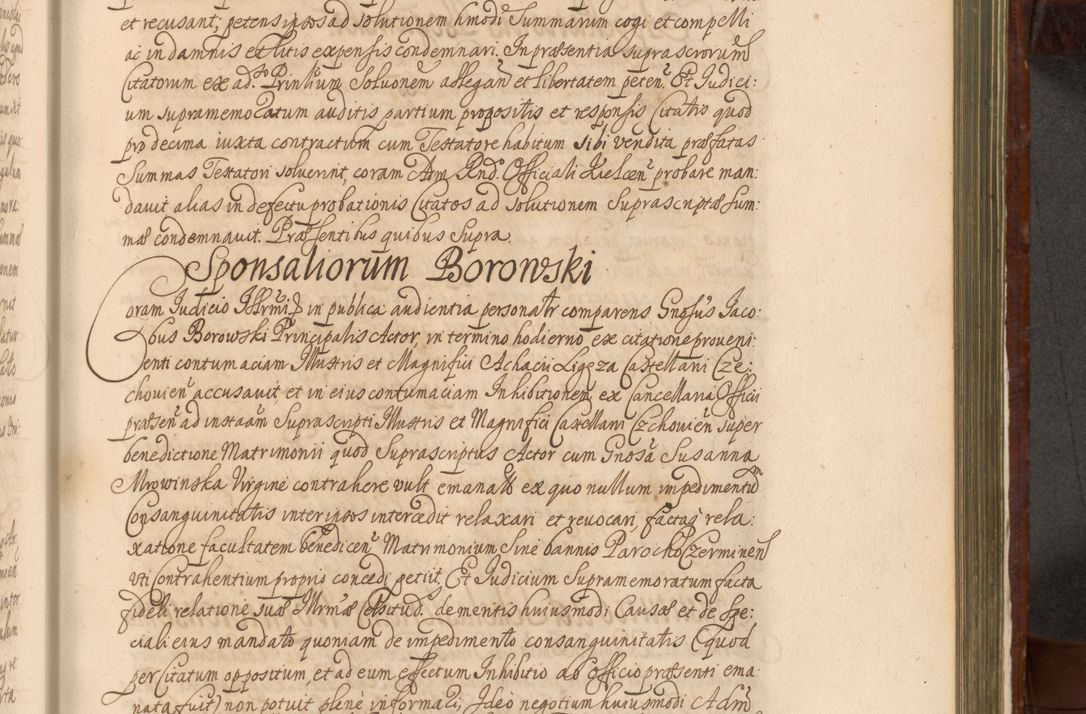 et recusant; petens ipsos ad Solutionem hmodi Summarum cogi et compelli
ac in damnis et litis expensis condemnari. In præsentia suprascriorum
Citatorum ex ad. Prinlium Soluonem allegan et libertatem peten. Et Judici:
um supramemoratum auditis partium propositis et responsis Citatis quod
pro decima iuxta contractum cum Testatore habitum sibi vendita præfatas
Summas Testatori soluerint, coram Adm Rnd. Officiali Kielcen probare man:
dauit alias in defectu probationis Citatos ad Solutionem Suprascriptæ sum:
mæ condemnauit. Præsentibus quibus supra.
Sponsaliorum Borowski
Coram Judicio in publica audientia personalr comparens Gnosus Jaco:
bus Borowski Principalis Actor, in termino hodierno, ex citatione proueni:
enti contumaciam Illustris et Magnifici Achacii Ligęza Castellani Cze:
chouien accusauit et in eius contumaciam Inhibitionem ex Cancellaria Officii
præsen ad instaam Suprascripti Illustris et Magnifici Castellani Czchouien super
benedictione Matrimonii quod Suprascriptus Actor cum Gnosa Susanna
Mrowinska Virgine contrahere vult emanatto ex quo nullum impedimentum
Consanguinitatis inter ipsos intercedit relaxari et reuocari, factaq rela:
xatione facultatem benedicen Matrimonium Sine bannis Parocho
vti Contrahentium proprio concedi petiit, Et Judicium Supramemoratum facta
fideli relatione suæ Illrmæ Celsitud. de meritis huiusmodi Causæ et de spe:
ciali eius mandato quoniam de impedimento consanguinitatis (quod
per Citatum oppositum et ad eum effectum Inhibitio ab Officio præsenti ema:
nata fuit) non potuit plene informari; Ideo negotium huiusmodi Adm